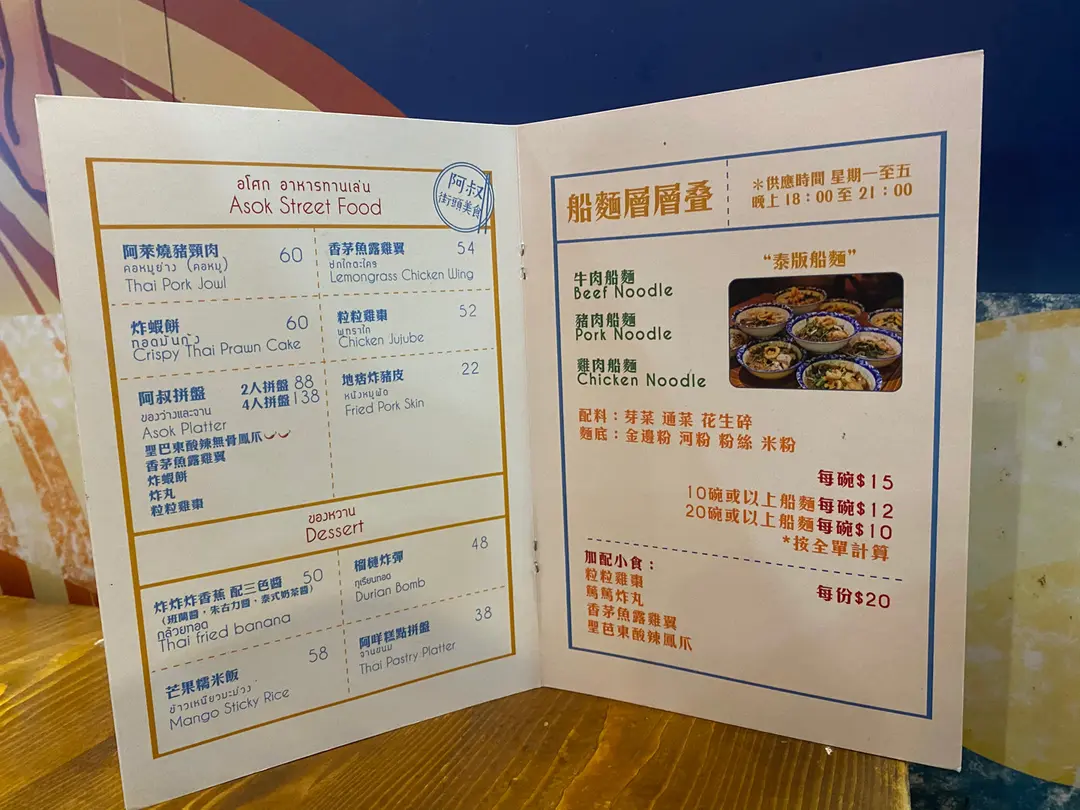 อโศก อาหารทานเล่น
Asok Street Food
阿叔
街頭美食
阿萊燒豬頸肉 60
คอหมูย่าง (คอหมู)
Thai Pork Jowl
香茅魚露雞翼 54
ปีกไก่ตะไคร้
Lemongrass Chicken Wing
炸蝦餅 60
ทอดมันกุ้ง
Crispy Thai Prawn Cake
粒粒雞棗 52
พุทราไก่
Chicken Jujube
阿叔拼盤 2人拼盤 88
4人拼盤 138
ของว่างและจาน
Asok Platter
聖巴東酸辣無骨鳳爪
香茅魚露雞翼
炸蝦餅
炸丸
粒粒雞棗
地痞炸豬皮 22
หนังหมูผัด
Fried Pork Skin
ของหวาน
Dessert
炸炸炸香蕉 配三色醬 50
（班蘭醬，朱古力醬，泰式奶茶醬）
กล้วยทอด
Thai fried banana
榴槤炸彈 48
ทุเรียนทอด
Durian Bomb
芒果糯米飯 58
ข้าวเหนียวมะม่วง
Mango Sticky Rice
阿咩糕點拼盤 38
จานขนม
Thai Pastry Platter
船麵層層叠
＊供應時間 星期一至五
晚上 18：00 至 21：00
“泰版船麵”
牛肉船麵
Beef Noodle
豬肉船麵
Pork Noodle
雞肉船麵
Chicken Noodle
配料：芽菜 通菜 花生碎
麵底：金邊粉 河粉 粉絲 米粉
每碗$15
10碗或以上船麵每碗$12
20碗或以上船麵每碗$10
*按全單計算
加配小食：
粒粒雞棗
篤篤炸丸
香茅魚露雞翼
聖芭東酸辣鳳爪
每份$20